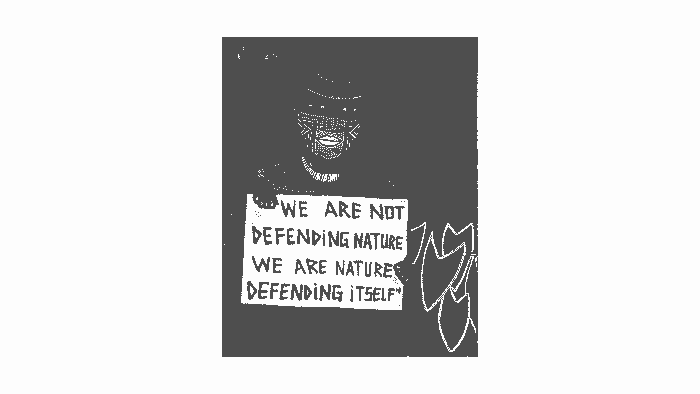 WE ARE NOT
DEFENDING NATURE
WE ARE NATURE
DEFENDING iTSELF"